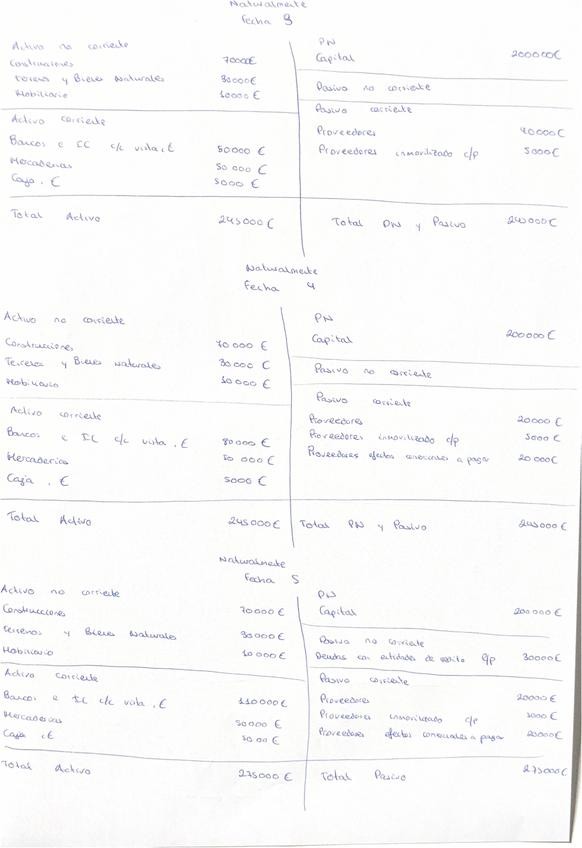 Naturalmente
Fecha 3
Activo no corriente
Construcciones 70000€
Terrenos y Bienes Naturales 30000€
Mobiliario 10000 €
PN
Capital 200000€
Pasivo no corriente
Pasivo corriente
Proveedores 40000€
Proveedores inmovilizado c/p 5000€
Activo corriente
Bancos e IC c/c vista, € 80000 €
Mercaderías 50 000 €
Caja, € 5000 €
Total Activo 245000€
Total PN y Pasivo 245000€
Naturalmente
Fecha 4
Activo no corriente
Construcciones 70 000 €
Terrenos y Bienes Naturales 30000 €
Mobiliario 10 000 €
PN
Capital 200000€
Pasivo no corriente
Pasivo corriente
Proveedores 20000€
Proveedores inmovilizado c/p 5000 €
Proveedores efectos comerciales a pagar 20000€
Activo corriente
Bancos e IC c/c vista, € 80000 €
Mercaderías 50 000 €
Caja, € 5000 €
Total Activo 245000€
Total PN y Pasivo 245000€
Naturalmente
Fecha 5
Activo no corriente
Construcciones 70000€
Terrenos y Bienes Naturales 30000€
Mobiliario 10000€
PN
Capital 200000€
Pasivo no corriente
Deudas con entidades de crédito 30000€
Pasivo corriente
Proveedores 20000€
Proveedores inmovilizado c/p 5000€
Proveedores efectos comerciales a pagar 20000€
Activo corriente
Bancos e IC c/c vista, € 110000€
Mercaderías 50000€
Caja, €
Total Activo 275000€
Total Pasivo 275000€